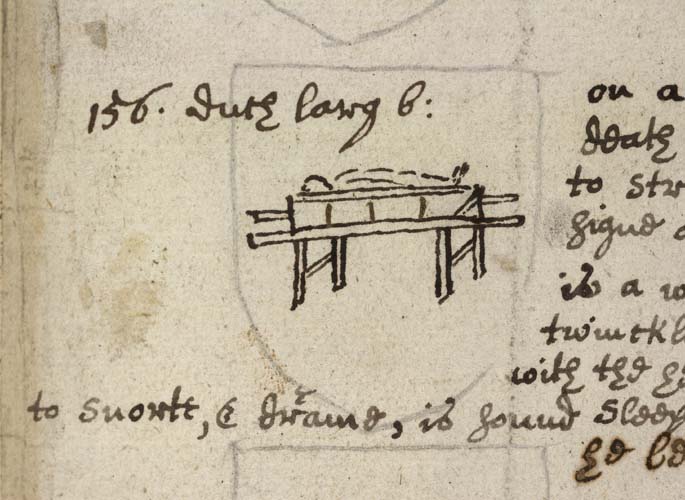 156. duth larg b:
on a
death
to str
higne
is a w
twinckl
with the h
to snortt, & drame, is hound sleep
he be